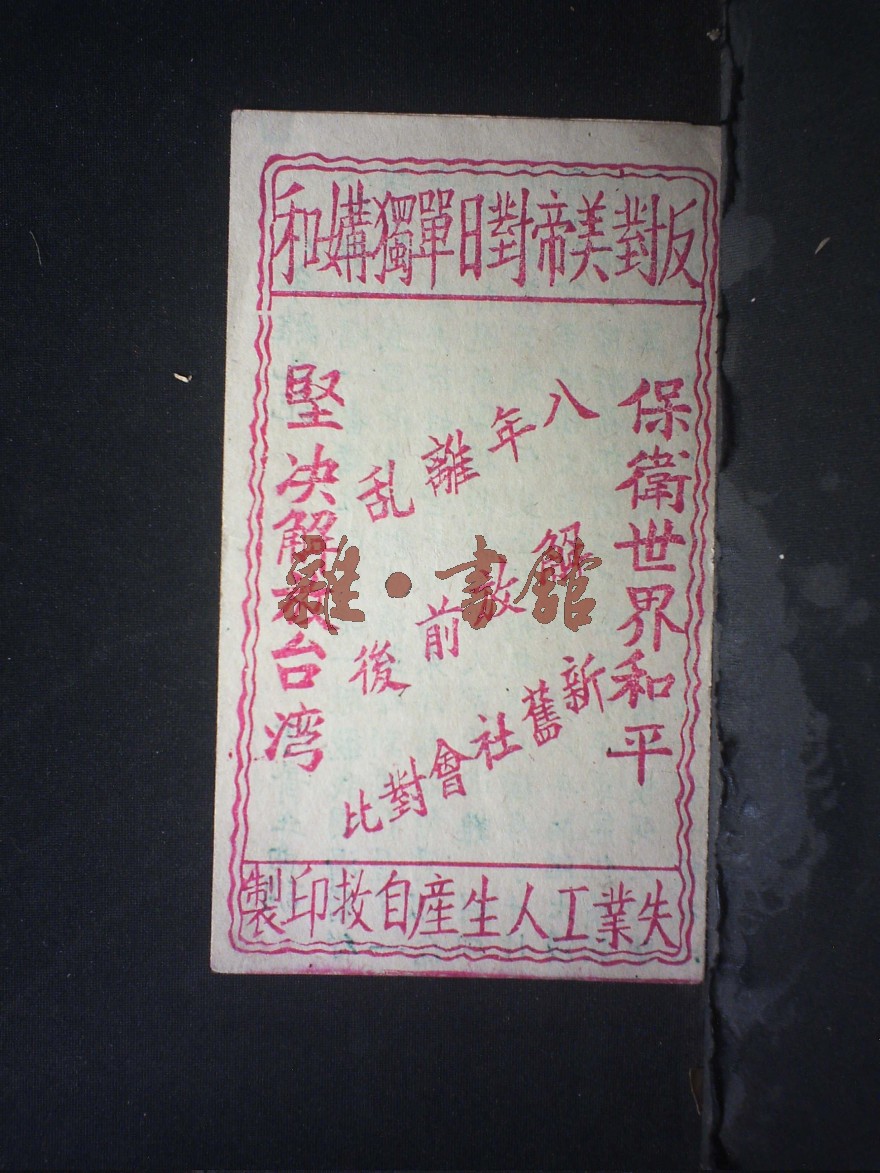 反對美帝對日單獨媾和
保衛世界和平
八年離乱
解放前後
新舊社會對比
堅决解放台湾
失業工人生産自救印製
雜·書館